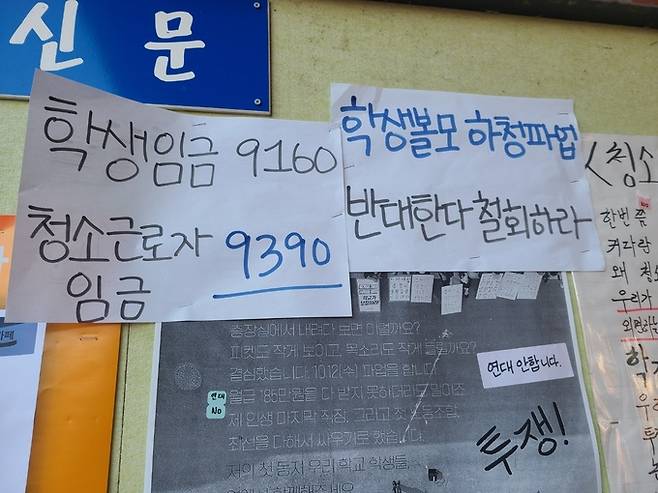 신문
학생임금 9160
청소근로자 9390
임금
학생볼모 하청파업
반대한다 철회하라
총장실에서 내려다 보면 어떨까요?
피켓도 작게 보이고, 목소리도 작게 들릴까요?
결심했습니다. 10.12(수) 파업을 합니다.
월급 185만원을 다 받지 못하더라도 말이죠
제 인생 마지막 직장, 그리고 첫 노동조합,
최선을 다해서 싸우기로 했습니다.
저의 첫 동지 우리 학교 학생들,
연대
No
연대 안합니다.
투쟁!
<청소
한번 쯤
커다란
왜 청소
우리가
외면하는